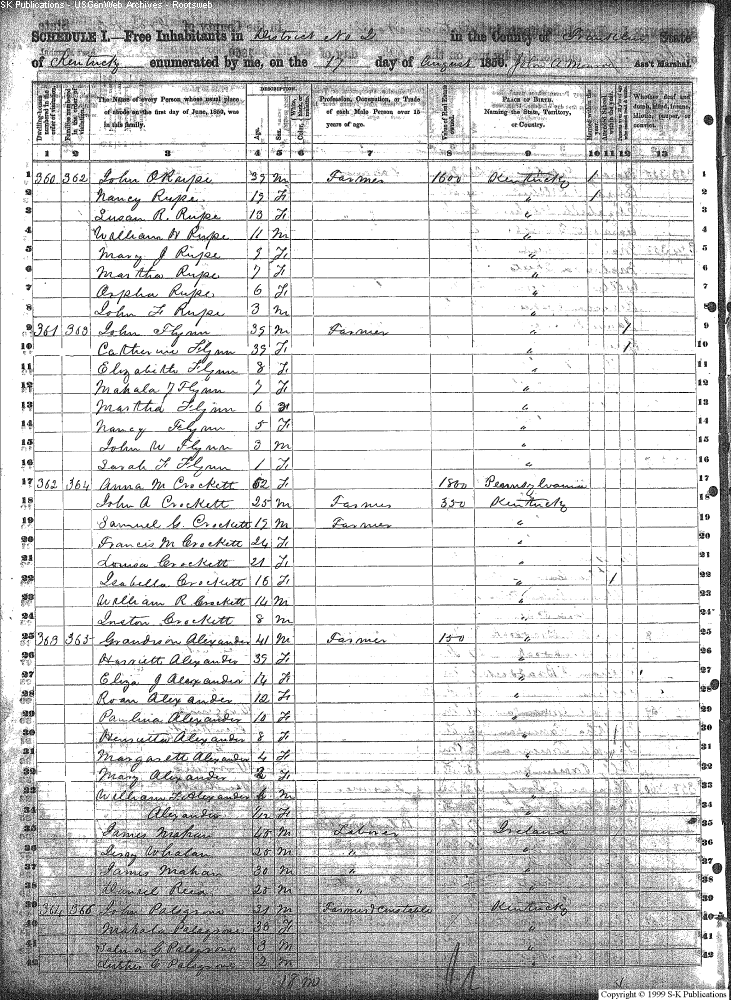 SK Publications - USGenWeb Archives - Rootsweb
SCHEDULE I.—Free Inhabitants in District No 2 in the County of Franklin State
of Kentucky enumerated by me, on the 17 day of August 1850. John A Ass't Marshal.
DESCRIPTION.
Dwelling-houses numbered in the order of visitation. Families numbered in the order of visitation. The Name of every Person whose usual place of abode on the first day of June, 1850, was in this family. Age. Sex. Color, Profession, Occupation, or Trade of each Male Person over 15 years of age. Value of Real Estate owned. PLACE OF BIRTH. Naming the State, Territory, or Country. Married within the year. Attended School within the year. Whether deaf and dumb, blind, insane, idiotic, pauper, or convict.
1 2 3 4 5 6 7 8 9 10 11 12 13
1 360 362 John O Rupe 39 M Farmer 1600 Kentucky 1 1
2 Nancy Rupe 19 F " 1 2
3 Susan R. Rupe 13 F " 3
4 William H Rupe 11 M " 4
5 Mary J Rupe 9 F " 5
6 Martha Rupe 7 F " 6
7 Orpha Rupe 6 F " 7
8 John F Rupe 3 M " 8
9 361 363 John Flynn 39 M Farmer " 1 9
10 Catherine Flynn 39 F " 1 10
11 Elizabeth Flynn 8 F " 11
12 Mahala J Flynn 7 F " 12
13 Martha Flynn 6 F " 13
14 Nancy Flynn 5 F " 14
15 John W Flynn 3 M " 15
16 Sarah F Flynn 1 F " 16
17 362 364 Anna M Crockett 52 F 1800 Pennsylvania 17
18 John A Crockett 25 M Farmer 350 Kentucky 18
19 Samuel C. Crockett 19 M Farmer " 19
20 Francis M Crockett 24 F " 20
21 Louisa Crockett 21 F " 21
22 Isabella Crockett 16 F " 1 22
23 William R Crockett 14 M " 23
24 Inston Crockett 8 M " 24
25 363 365 Grandison Alexander 41 M Farmer 150 " 25
26 Harriett Alexander 39 F " 26
27 Eliza J Alexander 14 F " 27
28 Roan Alexander 12 F " 28
29 Paulina Alexander 10 F " 29
30 Henrietta Alexander 8 F " 1 30
31 Margarett Alexander 4 F " 31
Mary Alexander 2 F " 32
William F Alexander M " 33
Alexander F " 34
35 James Mahan 40 M Laborer Ireland 35
36 Whalan 20 M " " 36
37 James Mahan 30 M " " 37
38 Daniel 25 M " " 38
364 366 John Palsgrove 31 M Farmer & Constable Kentucky 40
Mahala Palsgrove 30 F " 41
Palsgrove 3 M " 42
Luther C Palsgrove 2 M "
Copyright © 1999 S-K Publications